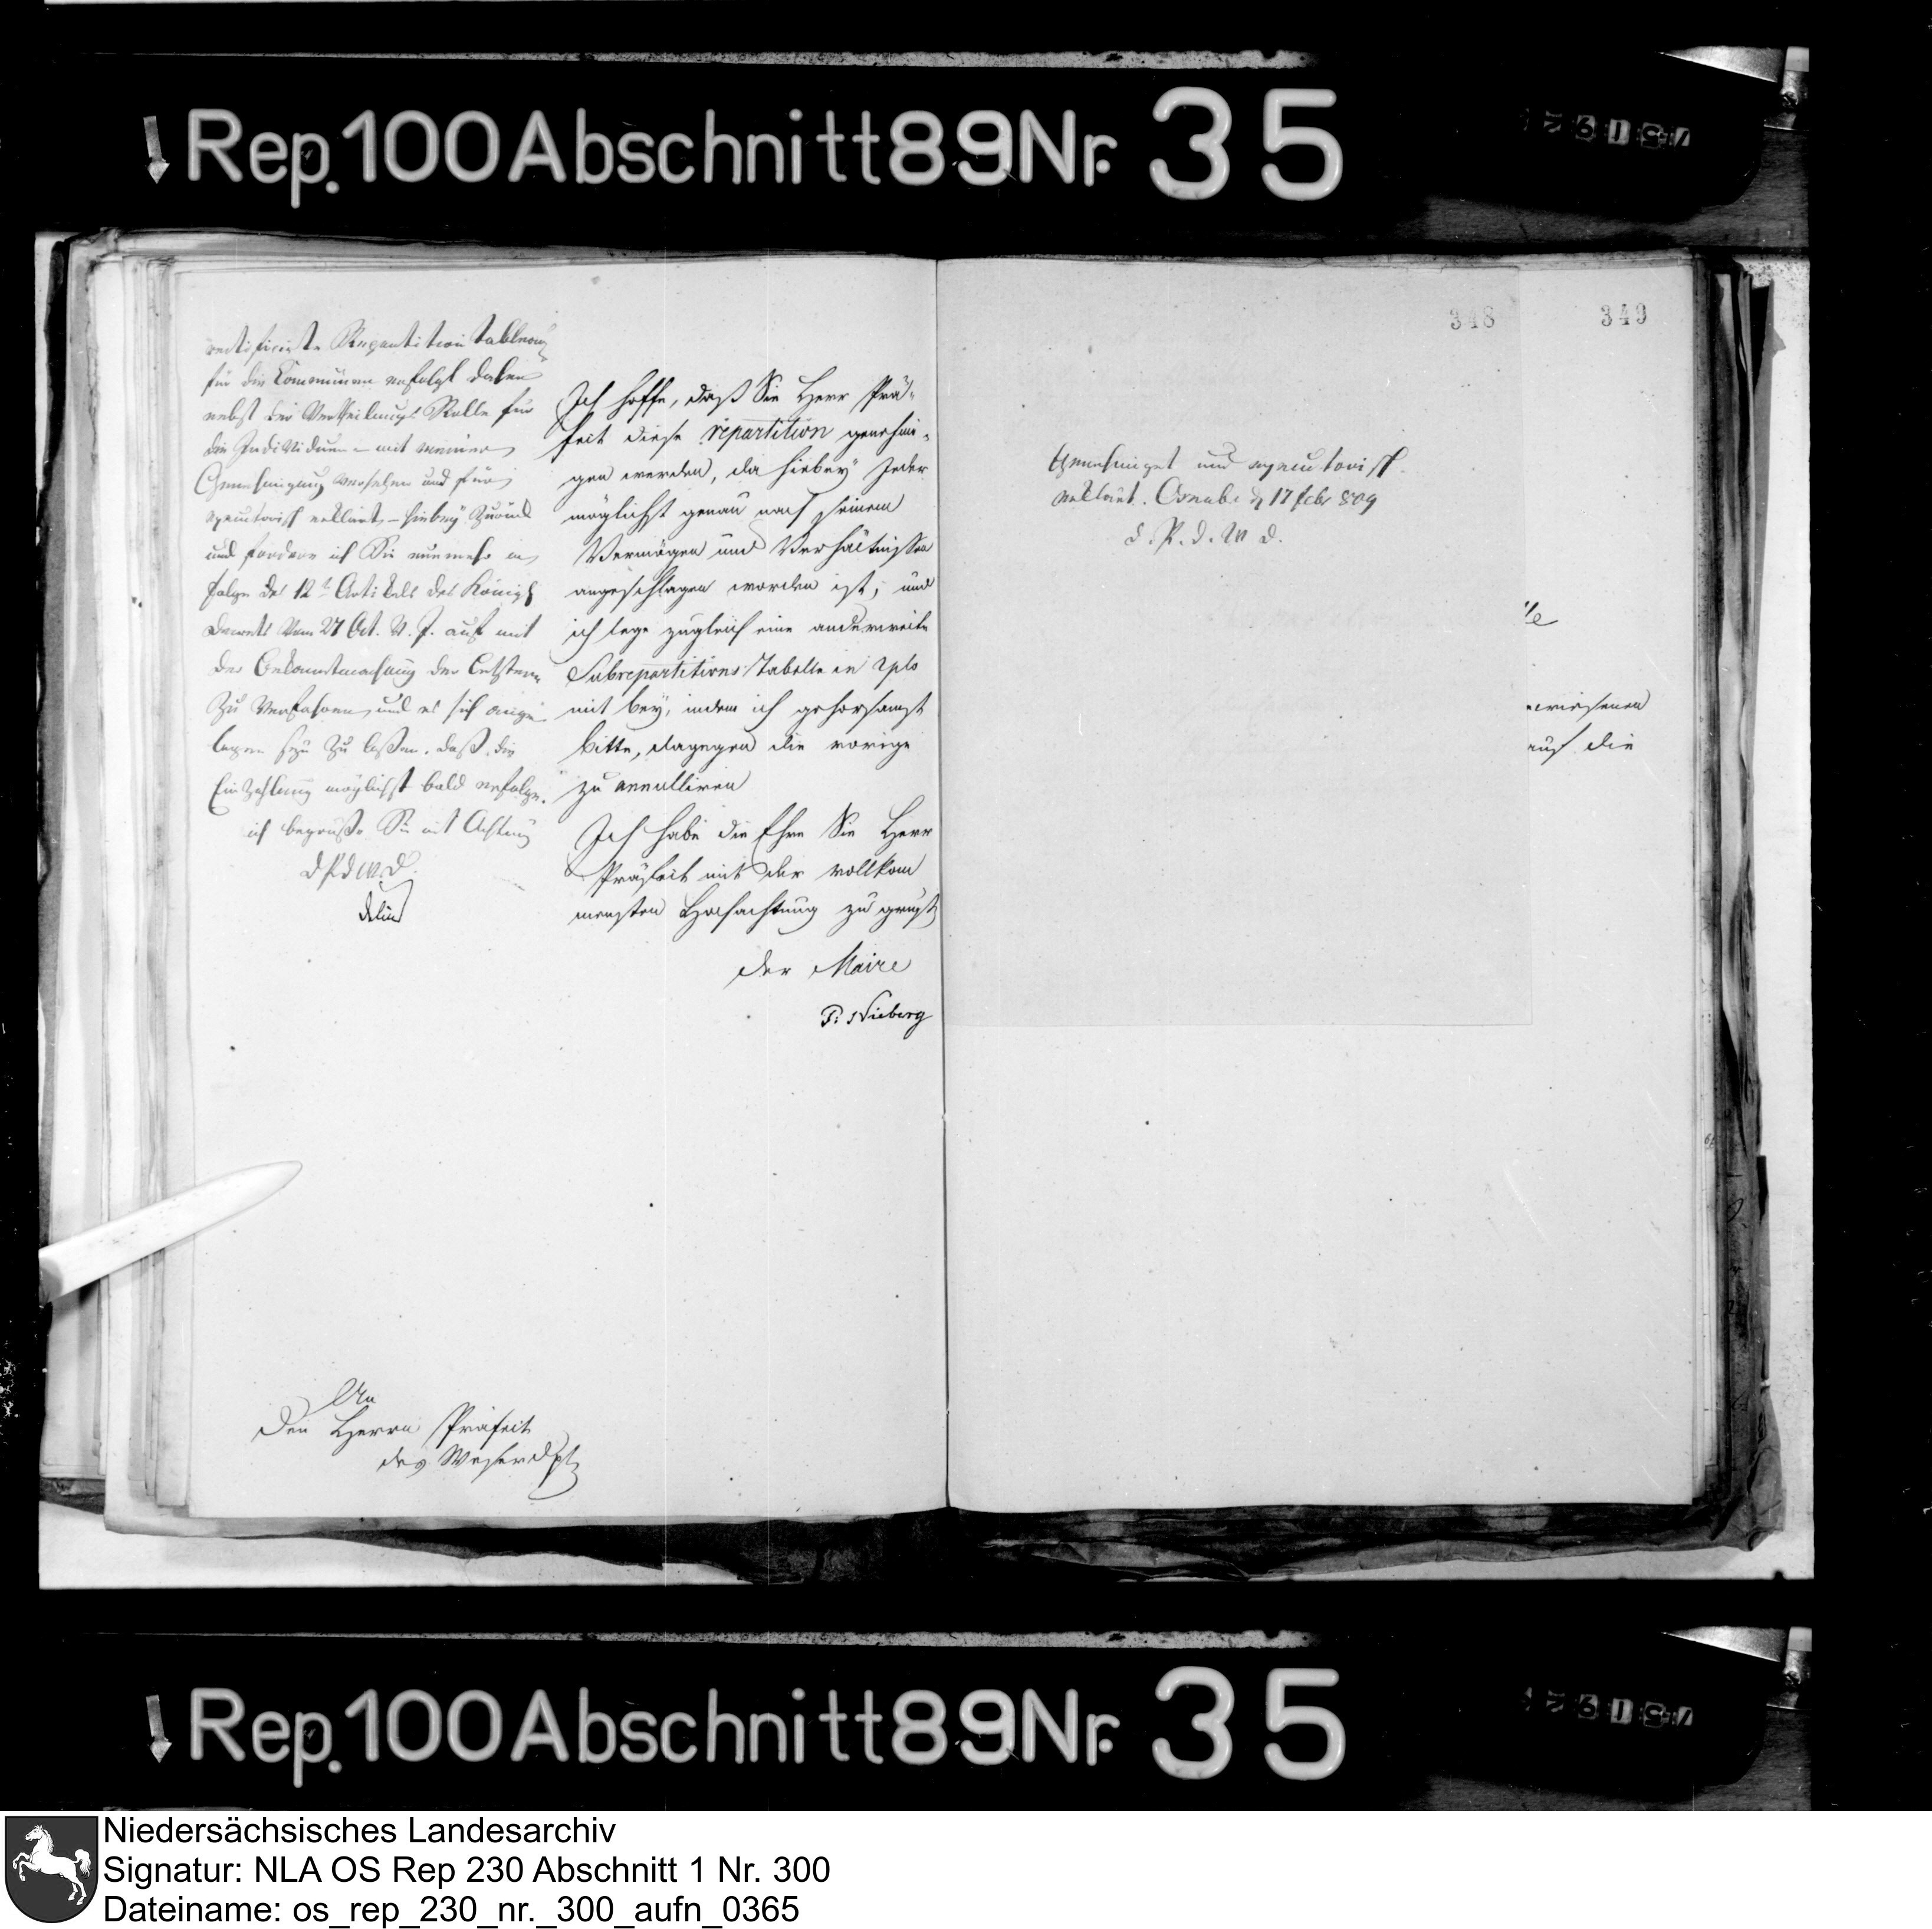 Rep. 100 Abschnitt 89 Nr. 35
rectificirte Repartition tableau
für die Communen erfolgt daher
nebst der Vertheilungs Rolle für
die Individuen mit meiner
Genehmigung versehen und für
executorisch erklärt, hiebey zurück
und fordere ich Sie nunmehr in
folge des 12t Artikels des Königl
Decrets vom 27 Oct. v. J. auf mit
der Bekanntmachung der
zu verfahren, und es sich ange-
legen seyn zu laßen, daß die
Einzahlung möglichst bald erfolge.
ich begrüße Sie mit Achtung
d P d W. D.
Ich hoffe, daß Sie Herr Prä-
fect diese repartition genehmi-
gen werden, da hiebey Jeder
möglichst genau nach seinem
Vermögen und Verhältnissen
angeschlagen worden ist; und
ich lege zugleich eine anderweite
Subrepartitions Tabelle in 2plo
mit bey, indem ich gehorsamst
bitte, dagegen die vorige
zu annulliren
Ich habe die Ehre Sie Herr
Präfect mit der vollkom
mensten Hochachtung zu
der Maire
P: Nieberg
An
den Herrn Präfect
des Weserdpts
348
349
Genehmiget und executorisch
erklärt. Osnabr. d 17 febr 809
d. P. d. W D.
auf die
Rep. 100 Abschnitt 89 Nr. 35
Niedersächsisches Landesarchiv
Signatur: NLA OS Rep 230 Abschnitt 1 Nr. 300
Dateiname: os_rep_230_nr._300_aufn_0365